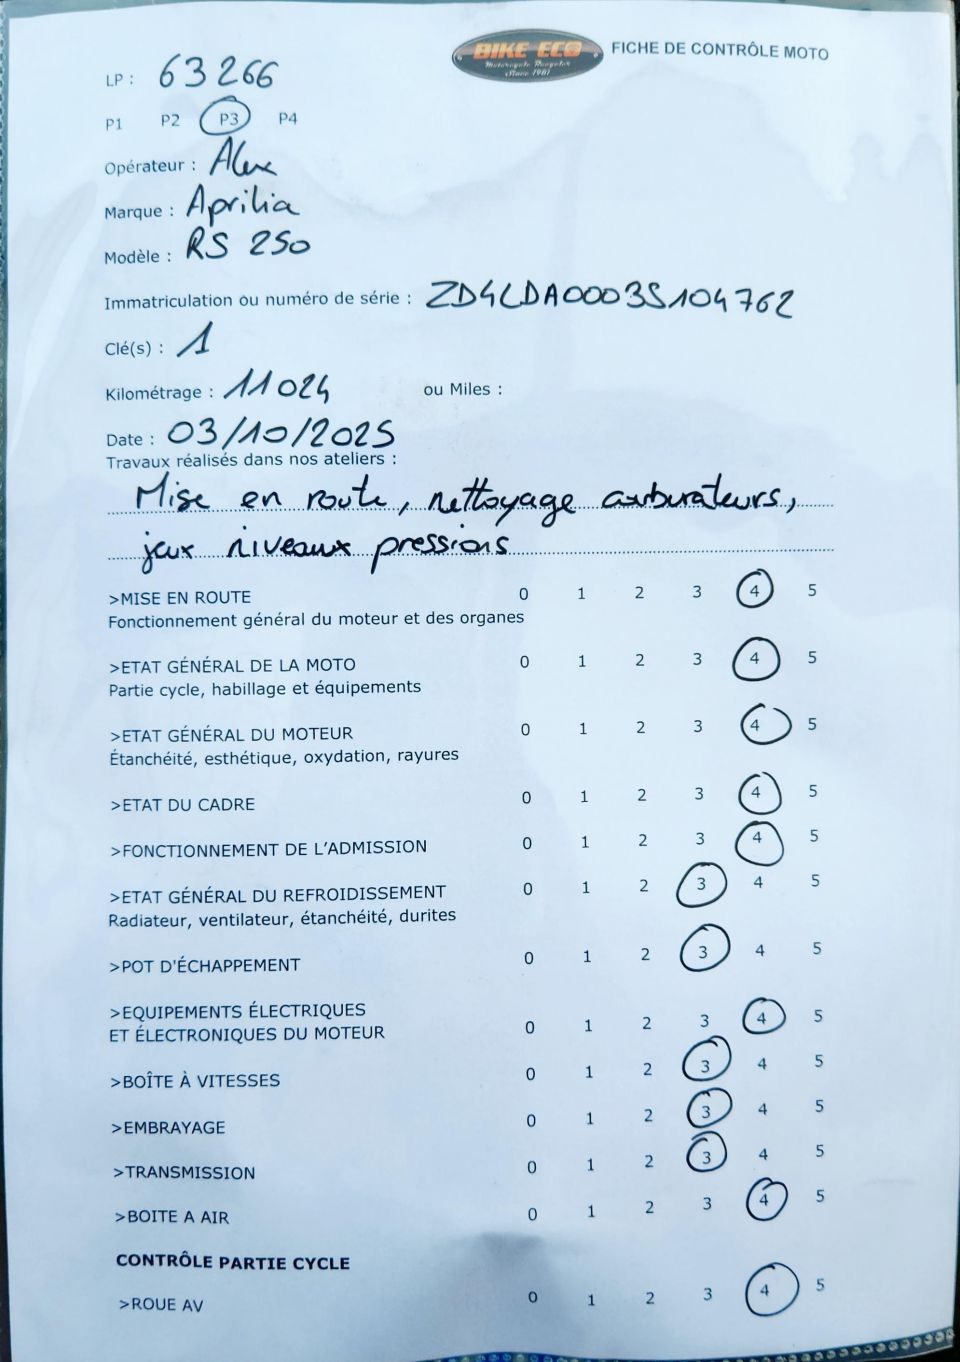 BIKE ECO
Motorcycle Recycler
Since 1981
FICHE DE CONTRÔLE MOTO
LP : 63266
P1 P2 P3 P4
Opérateur : Alex
Marque : Aprilia
Modèle : RS 250
Immatriculation ou numéro de série : ZD4LDA0003S104762
Clé(s) : 1
Kilométrage : 11024 ou Miles :
Date : 03/10/2025
Travaux réalisés dans nos ateliers :
Mise en route, nettoyage carburateurs,
jeux niveaux pressions
>MISE EN ROUTE 0 1 2 3 4 5
Fonctionnement général du moteur et des organes
>ETAT GÉNÉRAL DE LA MOTO 0 1 2 3 4 5
Partie cycle, habillage et équipements
>ETAT GÉNÉRAL DU MOTEUR 0 1 2 3 4 5
Étanchéité, esthétique, oxydation, rayures
>ETAT DU CADRE 0 1 2 3 4 5
>FONCTIONNEMENT DE L'ADMISSION 0 1 2 3 4 5
>ETAT GÉNÉRAL DU REFROIDISSEMENT 0 1 2 3 4 5
Radiateur, ventilateur, étanchéité, durites
>POT D'ÉCHAPPEMENT 0 1 2 3 4 5
>EQUIPEMENTS ÉLECTRIQUES
ET ÉLECTRONIQUES DU MOTEUR 0 1 2 3 4 5
>BOÎTE À VITESSES 0 1 2 3 4 5
>EMBRAYAGE 0 1 2 3 4 5
>TRANSMISSION 0 1 2 3 4 5
>BOITE A AIR 0 1 2 3 4 5
CONTRÔLE PARTIE CYCLE
>ROUE AV 0 1 2 3 4 5